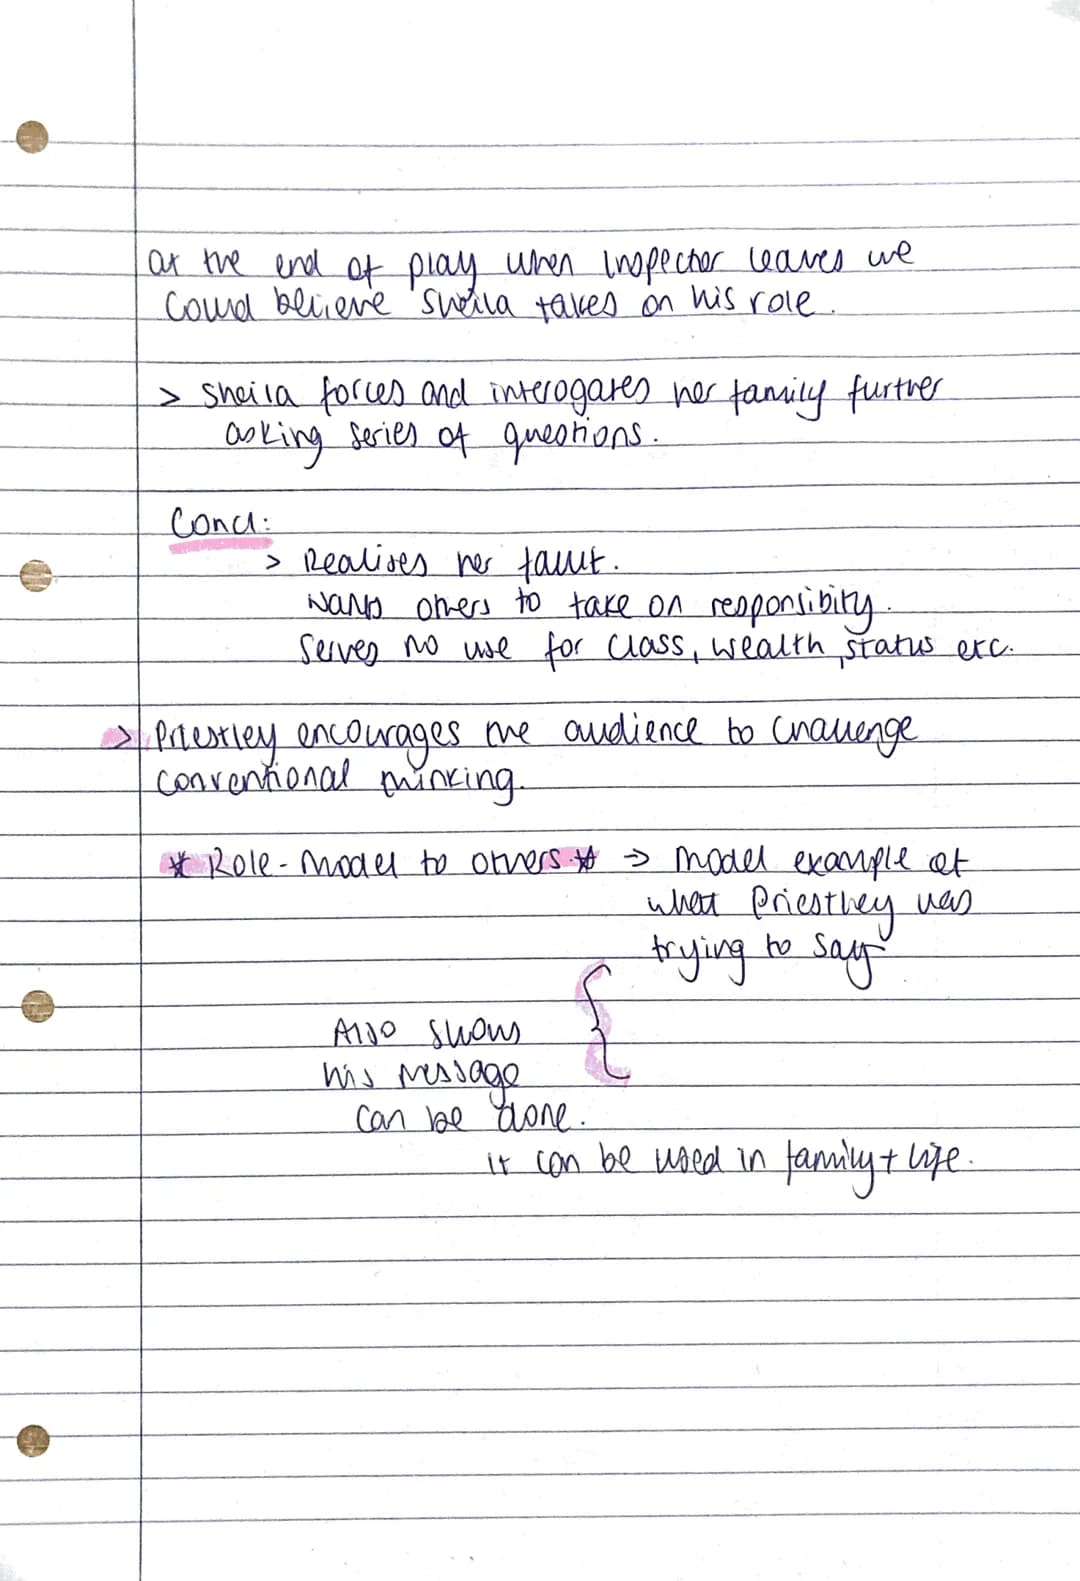 at the end of play when inspector leaves we
could believe sheila takes on his role.
> Sheila forces and interogates her family further
asking series of questions.
Concl:
> Realises her fault.
wants others to take on responsibility.
Serves no use for class, wealth, status etc.
> Priestley encourages the audience to challenge
conventional thinking.
* Role-model to others * → model example of
what Priestley was
trying to say
Also shows
his message
can be done.
it can be used in family + life.